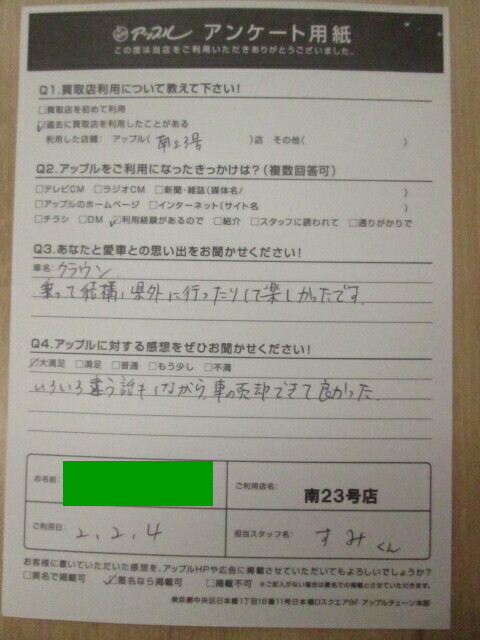 アップル アンケート用紙
この度は当店をご利用いただきありがとうございました。
Q1.買取店利用について教えて下さい!
□買取店を初めて利用
☑過去に買取店を利用したことがある
利用した店舗: アップル( 南23号 )店 その他( )
Q2.アップルをご利用になったきっかけは?(複数回答可)
□テレビCM □ラジオCM □新聞・雑誌(媒体名/ )
□アップルのホームページ □インターネット(サイト名 )
□チラシ □DM ☑利用経験があるので □紹介 □スタッフに誘われて □通りがかりで
Q3.あなたと愛車との思い出をお聞かせください!
車名: クラウン
乗って結構県外に行ったりして楽しかったです。
Q4.アップルに対する感想をぜひお聞かせください!
☑大満足 □満足 □普通 □もう少し □不満
いろいろ違う話もしながら、車の売却できて良かった
お名前
ご利用店名: 南23号店
ご利用日: 2,2,4
担当スタッフ名: すみくん
お客様に書いていただいた感想を、アップルHPや広告に掲載させていただいてもよろしいでしょうか?
□実名で掲載可 ☑匿名なら掲載可 □掲載不可 ※ご記入がない場合は匿名での掲載とさせていただきます。
東京都中央区日本橋1丁目16番11号日本橋Dスクエア9F アップルチェーン本部